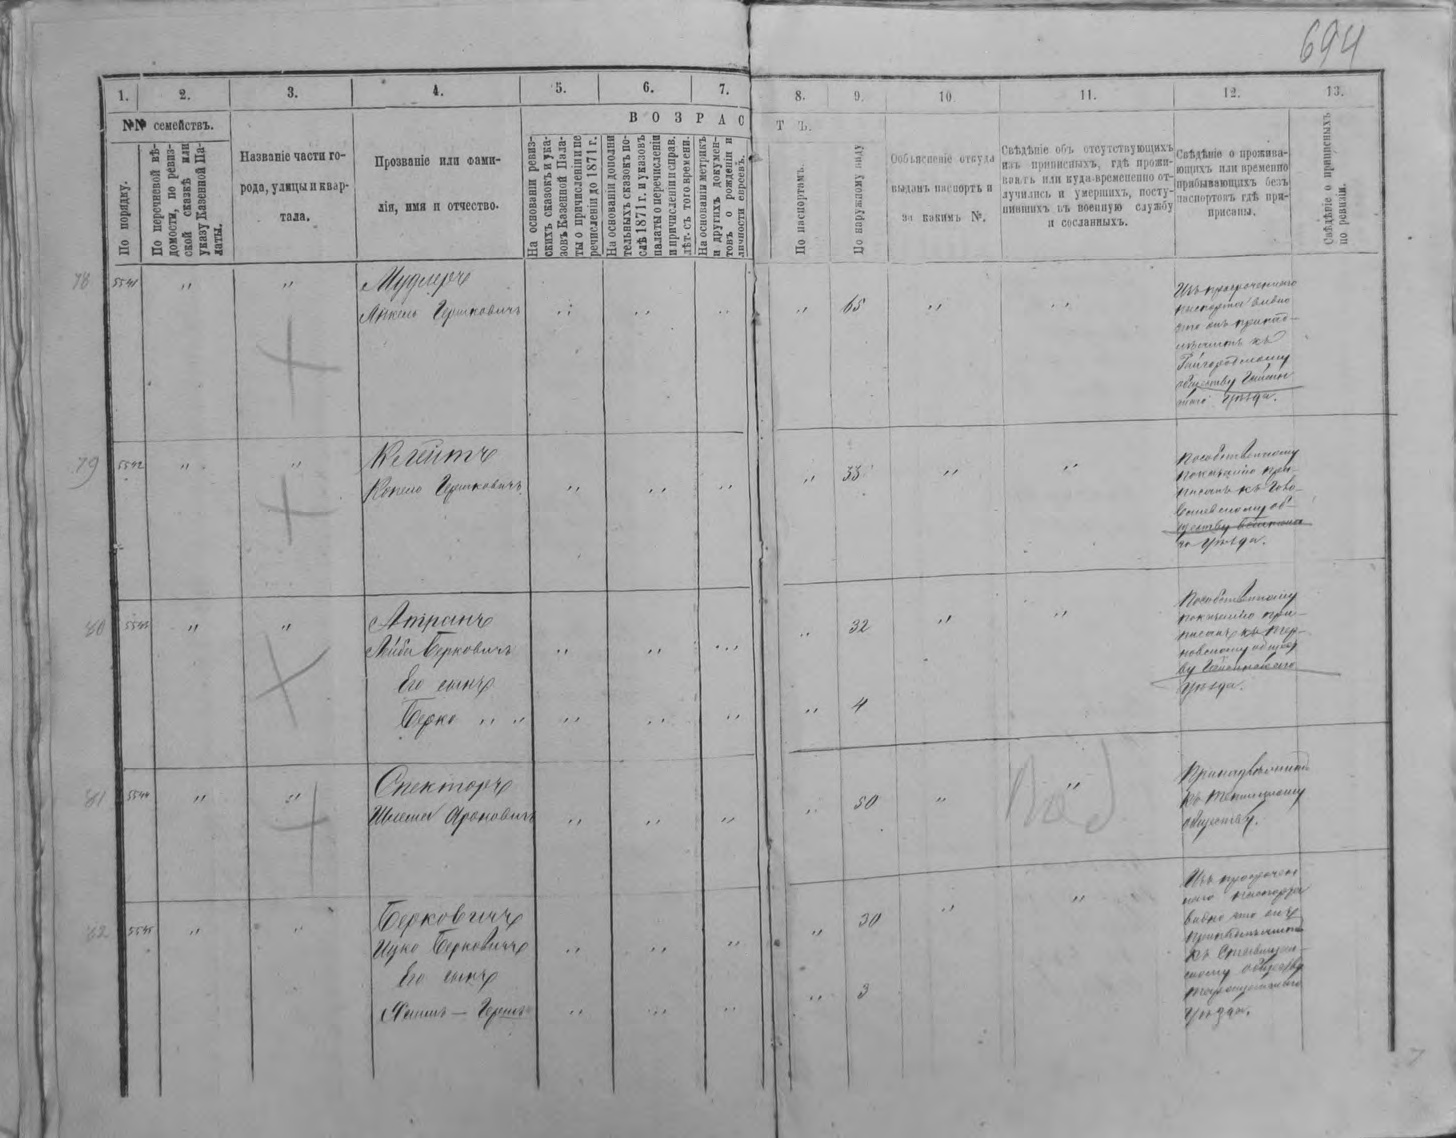 694
1. 2. 3. 4. 5. 6. 7. 8. 9. 10 11. 12. 13.
№№ семействъ.
По порядку.
По перечневой вѣ-
домости, по ревиз-
ской сказкѣ или
указу Казенной Па-
латы.
Названіе части го-
рода, улицы и квар-
тала.
Прозваніе или фами-
лія, имя и отчество.
ВОЗРАС
ТЪ.
На основаніи ревиз-
скихъ сказокъ и ука-
зовъ Казенной Пала-
ты о причисленіи и пе
речисленіи до 1871 г.
На основаніи дополни
тельныхъ сказокъ по-
слѣ 1871 г. и указовъ
палаты о перечисленіи
и причисленіи и справ.
лѣтъ съ того времени.
На основаніи метрикъ
и другихъ докумен-
товъ о рожденіи и
личности евреевъ.
По паспортамъ.
По наружному виду
Объясненіе откуда
выданъ паспортъ и
за какимъ №.
Свѣдѣніе объ отсутствующихъ
изъ приписныхъ, гдѣ прожи-
ваютъ или куда временно от-
лучились и умершихъ, посту-
пившихъ въ военную службу
и сосланныхъ.
Свѣдѣніе о прожива-
ющихъ или временно
прибывающихъ безъ
паспортовъ гдѣ при-
писаны.
Свѣдѣніе о приписныхъ
по ревизіи.
78 5541 " " Мудлеръ
Анкель Гершковичъ " " " " 65 " "
Изъ просроченнаго
паспорта видно
что онъ принад-
лежитъ къ
Гайсин
Уѣзда.
79 5542 " "
Гершковичъ " " " " 33 " "
Пособственному
показанію при-
писанъ къ
Уѣзда.
80 5543 " "
Лейба Берковичъ " " " " 32 " "
Его сынъ
Берко " " " " " " 4
Пособственному
показанію при-
писанъ къ
Гайсинскаго
Уѣзда.
81 5544 " " Спекторъ
Шлема Ароновичъ " " " " 50 " "
Принадлежитъ
къ
обществу.
82 5545 " " Берковичъ
Ицко Берковичъ " " " " 30 " "
Его сынъ
Гершъ " " " " 3
Изъ просрочен
наго паспорта
видно что онъ
принадлежитъ
къ
скому обществу
Уѣзда.